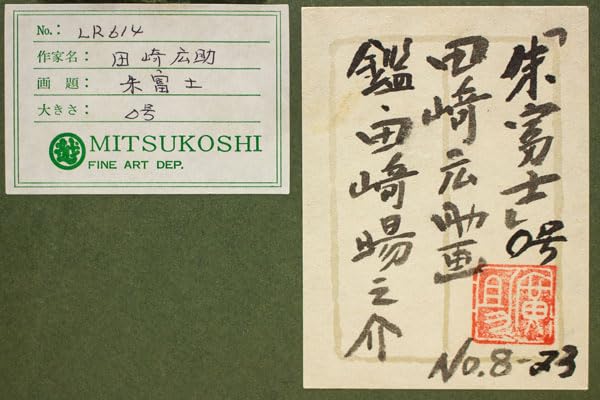 No.: LR614
作家名： 田崎広助
画題： 朱富士
大きさ： 0号
越 MITSUKOSHI
FINE ART DEP.
「朱富士」0号
田崎広助画
鑑 田崎暘之介
廣助
No.8-23